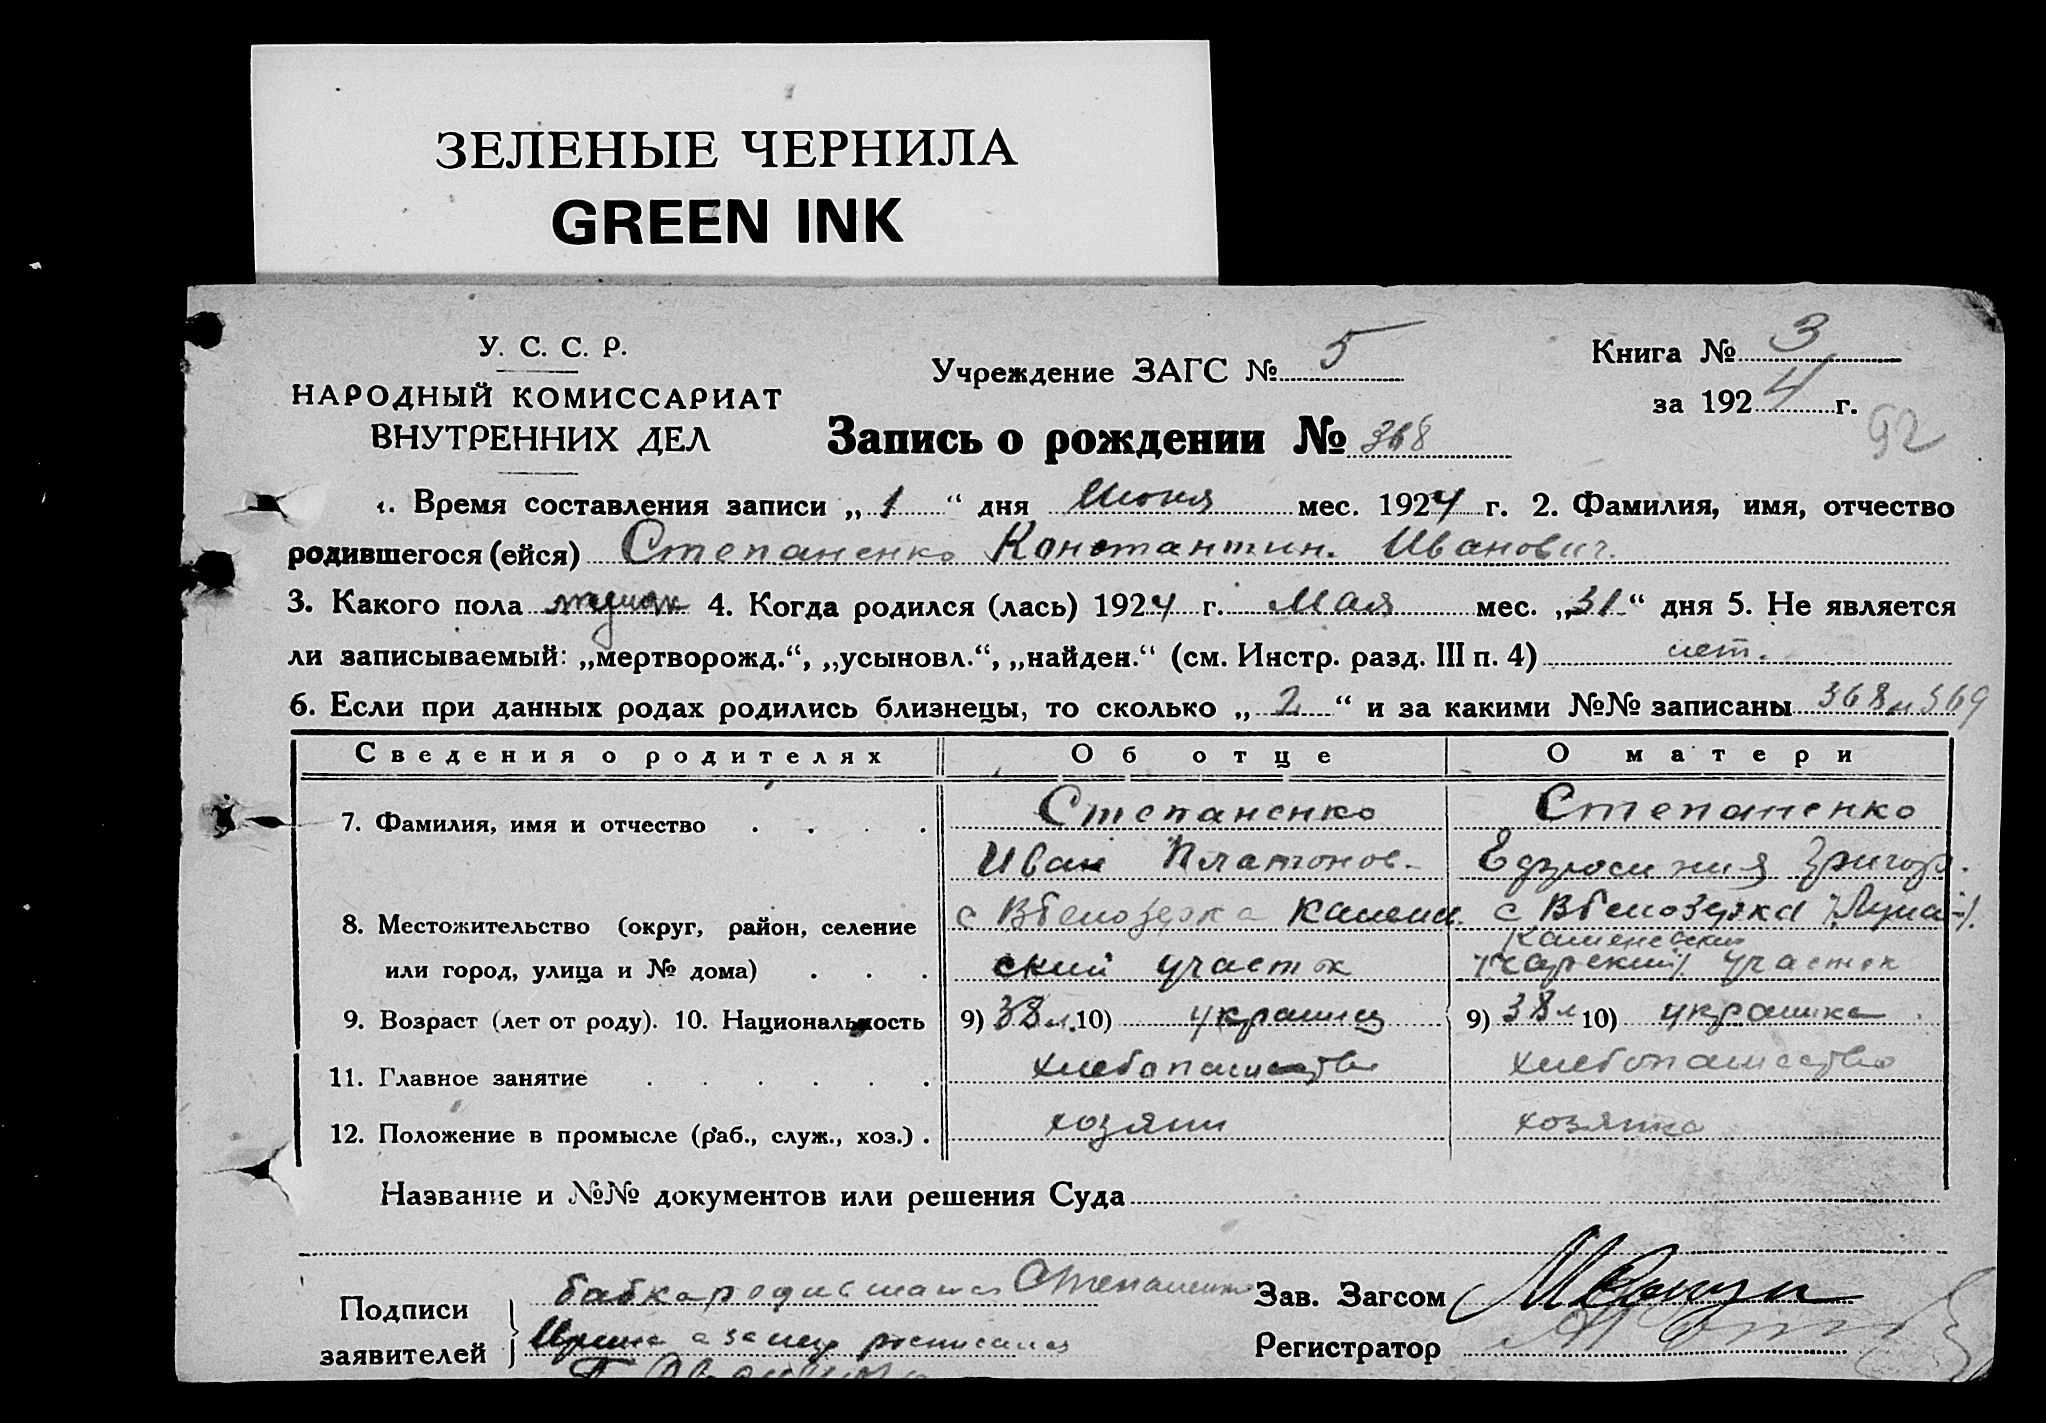 ЗЕЛЕНЫЕ ЧЕРНИЛА
GREEN INK
У. С. С. Р.
НАРОДНЫЙ КОМИССАРИАТ
ВНУТРЕННИХ ДЕЛ
Учреждение ЗАГС № 5
Книга № 3
за 1924 г.
92
Запись о рождении № 368
1. Время составления записи „1“ дня Июня мес. 1924 г. 2. Фамилия, имя, отчество
родившегося (ейся) Степаненко Константин. Иванович.
3. Какого пола 4. Когда родился (лась) 1924 г. Мая мес. „31“ дня 5. Не является
ли записываемый: „мертворожд.“, „усыновл.“, „найден.“ (см. Инстр. разд. III п. 4) нет.
6. Если при данных родах родились близнецы, то сколько „2“ и за какими №№ записаны 368 и 369
Сведения о родителях Об отце О матери
7. Фамилия, имя и отчество . . . . Степаненко Степаненко
Иван Платонов- Григор.
8. Местожительство (округ, район, селение с Вбелозерка Каменс. с Вбелозерка
Каменский
или город, улица и № дома) . . . ский участок участок
9. Возраст (лет от роду). 10. Национальность 9) 38 л. 10) украинец 9) 38 л 10) украинка
11. Главное занятие . . . . . . хлебопашество хлебопашество
12. Положение в промысле (раб., служ., хоз.) . хозяин хозяйка
Название и №№ документов или решения Суда
Подписи бабка Степаненко Зав. Загсом
заявителей Регистратор